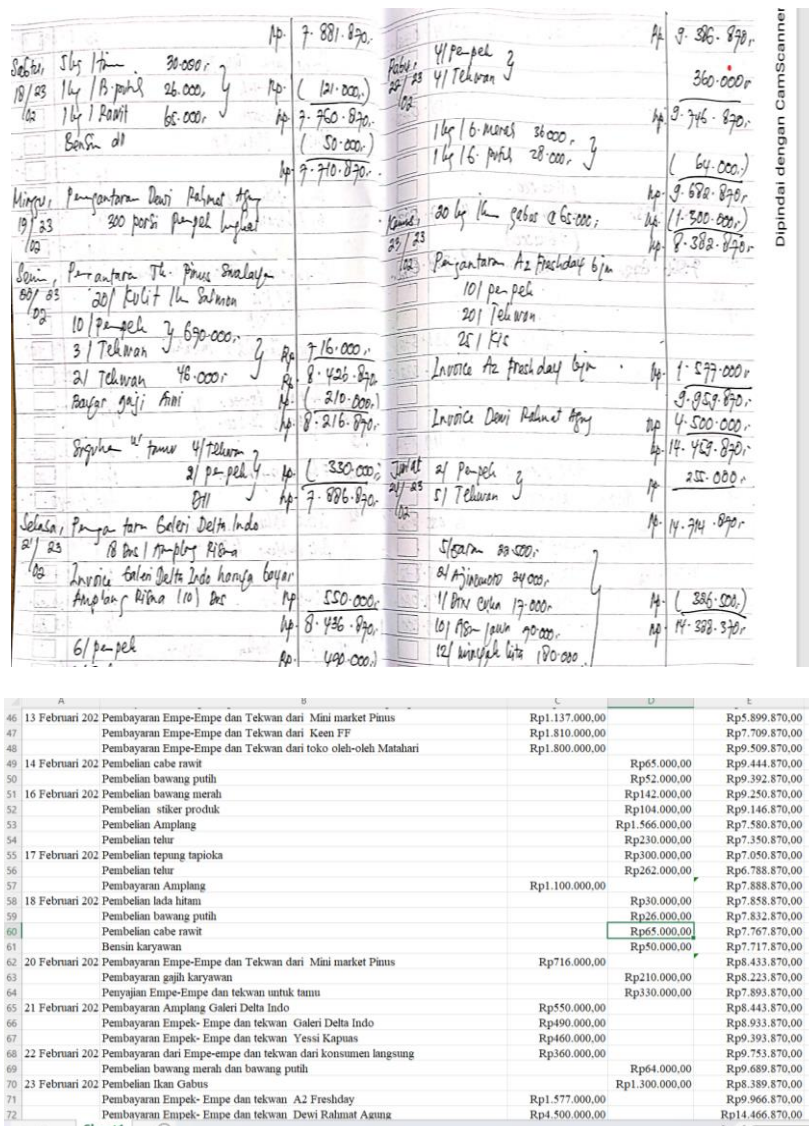 Rp. 7.881.870,-
Sabtu, 5kg / 30.000,-
18/23 1kg / B. putih 26.000, Rp. ( 121.000,-)
/02 1kg / Rawit 65.000,- Rp 7.760.870,-
Bensin dll ( 50.000,-)
Rp 7.710.870,-
Minggu, Pengantaran Dewi Rahmat Agung
19/23 300 porsi pempek
/02
Senin, Pengantaran Tk. Pinus Swalayan
20/23 20/ Kulit Ikan Salmon
/02 10/ Pempek 690.000,-
3/ Tekwan Rp 716.000,-
2/ Tekwan 46.000,- Rp. 8.426.870,-
Bayar gaji Aini Rp ( 210.000,-)
Rp. 8.216.870,-
4/ Tekwan
2/ pempek Rp. ( 330.000,-
Dll Rp. 7.886.870,-
Selasa, Pengantaran Galeri Delta Indo
21/23 18 Dos / Amplang
/02 Invoice Galeri Delta Indo hanya bayar
Amplang (10) Dos Rp 550.000,-
Rp. 8.436.870,-
6/ pempek
Rp. 490.000,-
Rp. 9.386.870,-
Rabu, 4/ Pempek
22/23 4/ Tekwan 360.000,-
/02 Rp. 9.746.870,-
1kg / B. merah 36.000,-
1kg / B. putih 28.000,- ( 64.000,-)
Rp. 9.682.870,-
Kamis, 20 kg Ikan gabus @ 65.000; Rp. (1.300.000,-)
23/23 Rp. 8.382.870,-
/02 Pengantaran Az Freshday bjm
10/ pempek
20/ Tekwan
25/
Invoice Az Freshday bjm Rp. 1.577.000,-
9.959.870,-
Invoice Dewi Rahmat Agung Rp 4.500.000,-
Rp. 14.459.870,-
Jum'at 2/ Pempek 255.000,-
24/23 5/ Tekwan Rp
/02 Rp. 14.714.870,-
5/ garam 22.500,-
2/ Ajinomoto 24.000,-
1/ Dos Cuka 17.000,- Rp. ( 326.500,-)
10/ Asam jawa 90.000,- Rp. 14.388.370,-
12/ minyak kita 180.000
Dipindai dengan CamScanner
A B C D E
46 13 Februari 202 Pembayaran Empe-Empe dan Tekwan dari Mini market Pinus Rp1.137.000,00 Rp5.899.870,00
47 Pembayaran Empe-Empe dan Tekwan dari Keen FF Rp1.810.000,00 Rp7.709.870,00
48 Pembayaran Empe-Empe dan Tekwan dari toko oleh-oleh Matahari Rp1.800.000,00 Rp9.509.870,00
49 14 Februari 202 Pembelian cabe rawit Rp65.000,00 Rp9.444.870,00
50 Pembelian bawang putih Rp52.000,00 Rp9.392.870,00
51 16 Februari 202 Pembelian bawang merah Rp142.000,00 Rp9.250.870,00
52 Pembelian stiker produk Rp104.000,00 Rp9.146.870,00
53 Pembelian Amplang Rp1.566.000,00 Rp7.580.870,00
54 Pembelian telur Rp230.000,00 Rp7.350.870,00
55 17 Februari 202 Pembelian tepung tapioka Rp300.000,00 Rp7.050.870,00
56 Pembelian telur Rp262.000,00 Rp6.788.870,00
57 Pembayaran Amplang Rp1.100.000,00 Rp7.888.870,00
58 18 Februari 202 Pembelian lada hitam Rp30.000,00 Rp7.858.870,00
59 Pembelian bawang putih Rp26.000,00 Rp7.832.870,00
60 Pembelian cabe rawit Rp65.000,00 Rp7.767.870,00
61 Bensin karyawan Rp50.000,00 Rp7.717.870,00
62 20 Februari 202 Pembayaran Empe-Empe dan Tekwan dari Mini market Pinus Rp716.000,00 Rp8.433.870,00
63 Pembayaran gajih karyawan Rp210.000,00 Rp8.223.870,00
64 Penyajian Empe-Empe dan tekwan untuk tamu Rp330.000,00 Rp7.893.870,00
65 21 Februari 202 Pembayaran Amplang Galeri Delta Indo Rp550.000,00 Rp8.443.870,00
66 Pembayaran Empek- Empe dan tekwan Galeri Delta Indo Rp490.000,00 Rp8.933.870,00
67 Pembayaran Empek- Empe dan tekwan Yessi Kapuas Rp460.000,00 Rp9.393.870,00
68 22 Februari 202 Pembayaran dari Empe-empe dan tekwan dari konsumen langsung Rp360.000,00 Rp9.753.870,00
69 Pembelian bawang merah dan bawang putih Rp64.000,00 Rp9.689.870,00
70 23 Februari 202 Pembelian Ikan Gabus Rp1.300.000,00 Rp8.389.870,00
71 Pembayaran Empek- Empe dan tekwan A2 Freshday Rp1.577.000,00 Rp9.966.870,00
72 Pembayaran Empek- Empe dan tekwan Dewi Rahmat Agung Rp4.500.000,00 Rp14.466.870,00